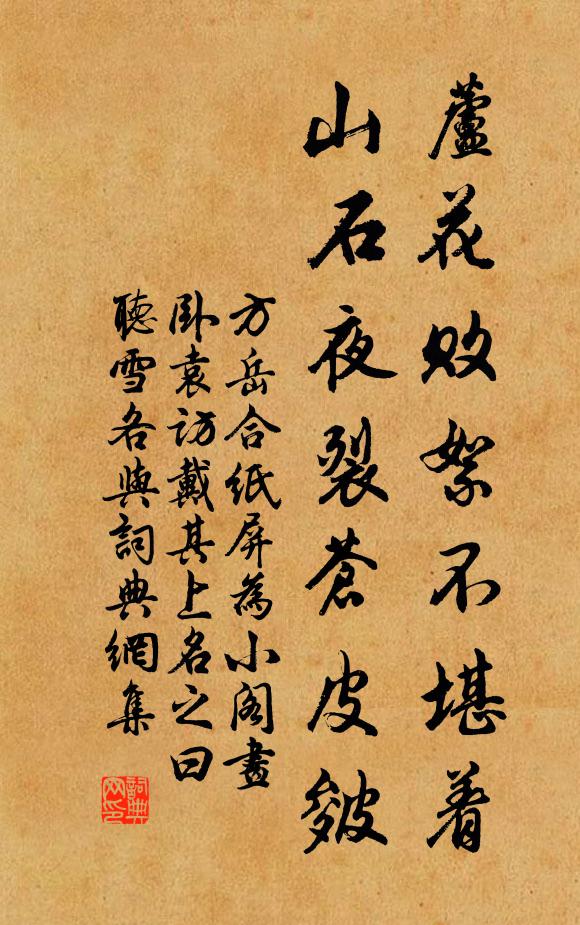 蘆花敗絮不堪着
山石夜裂蒼皮皴
方岳合紙屏為小閣畫
卧袁訪戴其上名之曰
聽雪各與詞典網集
詞典网印